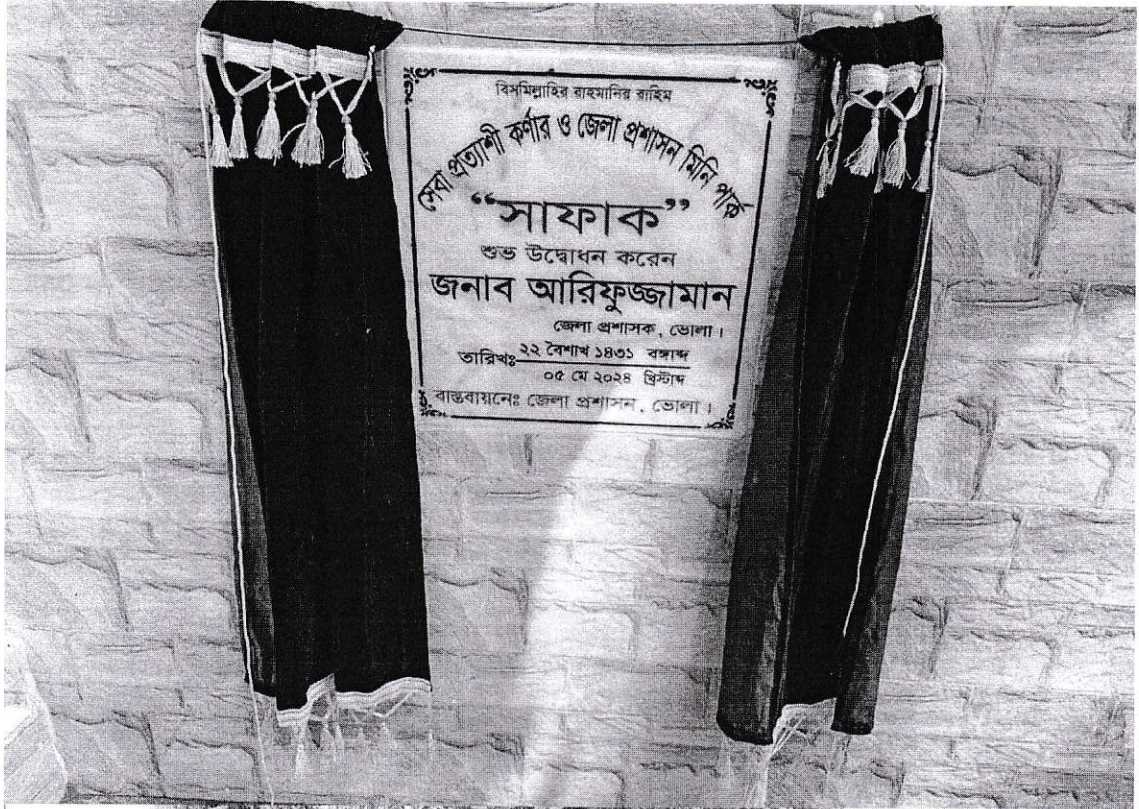 বিসমিল্লাহির রাহমানির রাহিম
সেবা প্রত্যাশী কর্ণার ও জেলা প্রশাসন মিনি পার্ক
“সাফাক”
শুভ উদ্বোধন করেন
জনাব আরিফুজ্জামান
জেলা প্রশাসক, ভোলা।
তারিখঃ ২২ বৈশাখ ১৪৩১ বঙ্গাব্দ
০৫ মে ২০২৪ খ্রিস্টাব্দ
বাস্তবায়নেঃ জেলা প্রশাসন, ভোলা।